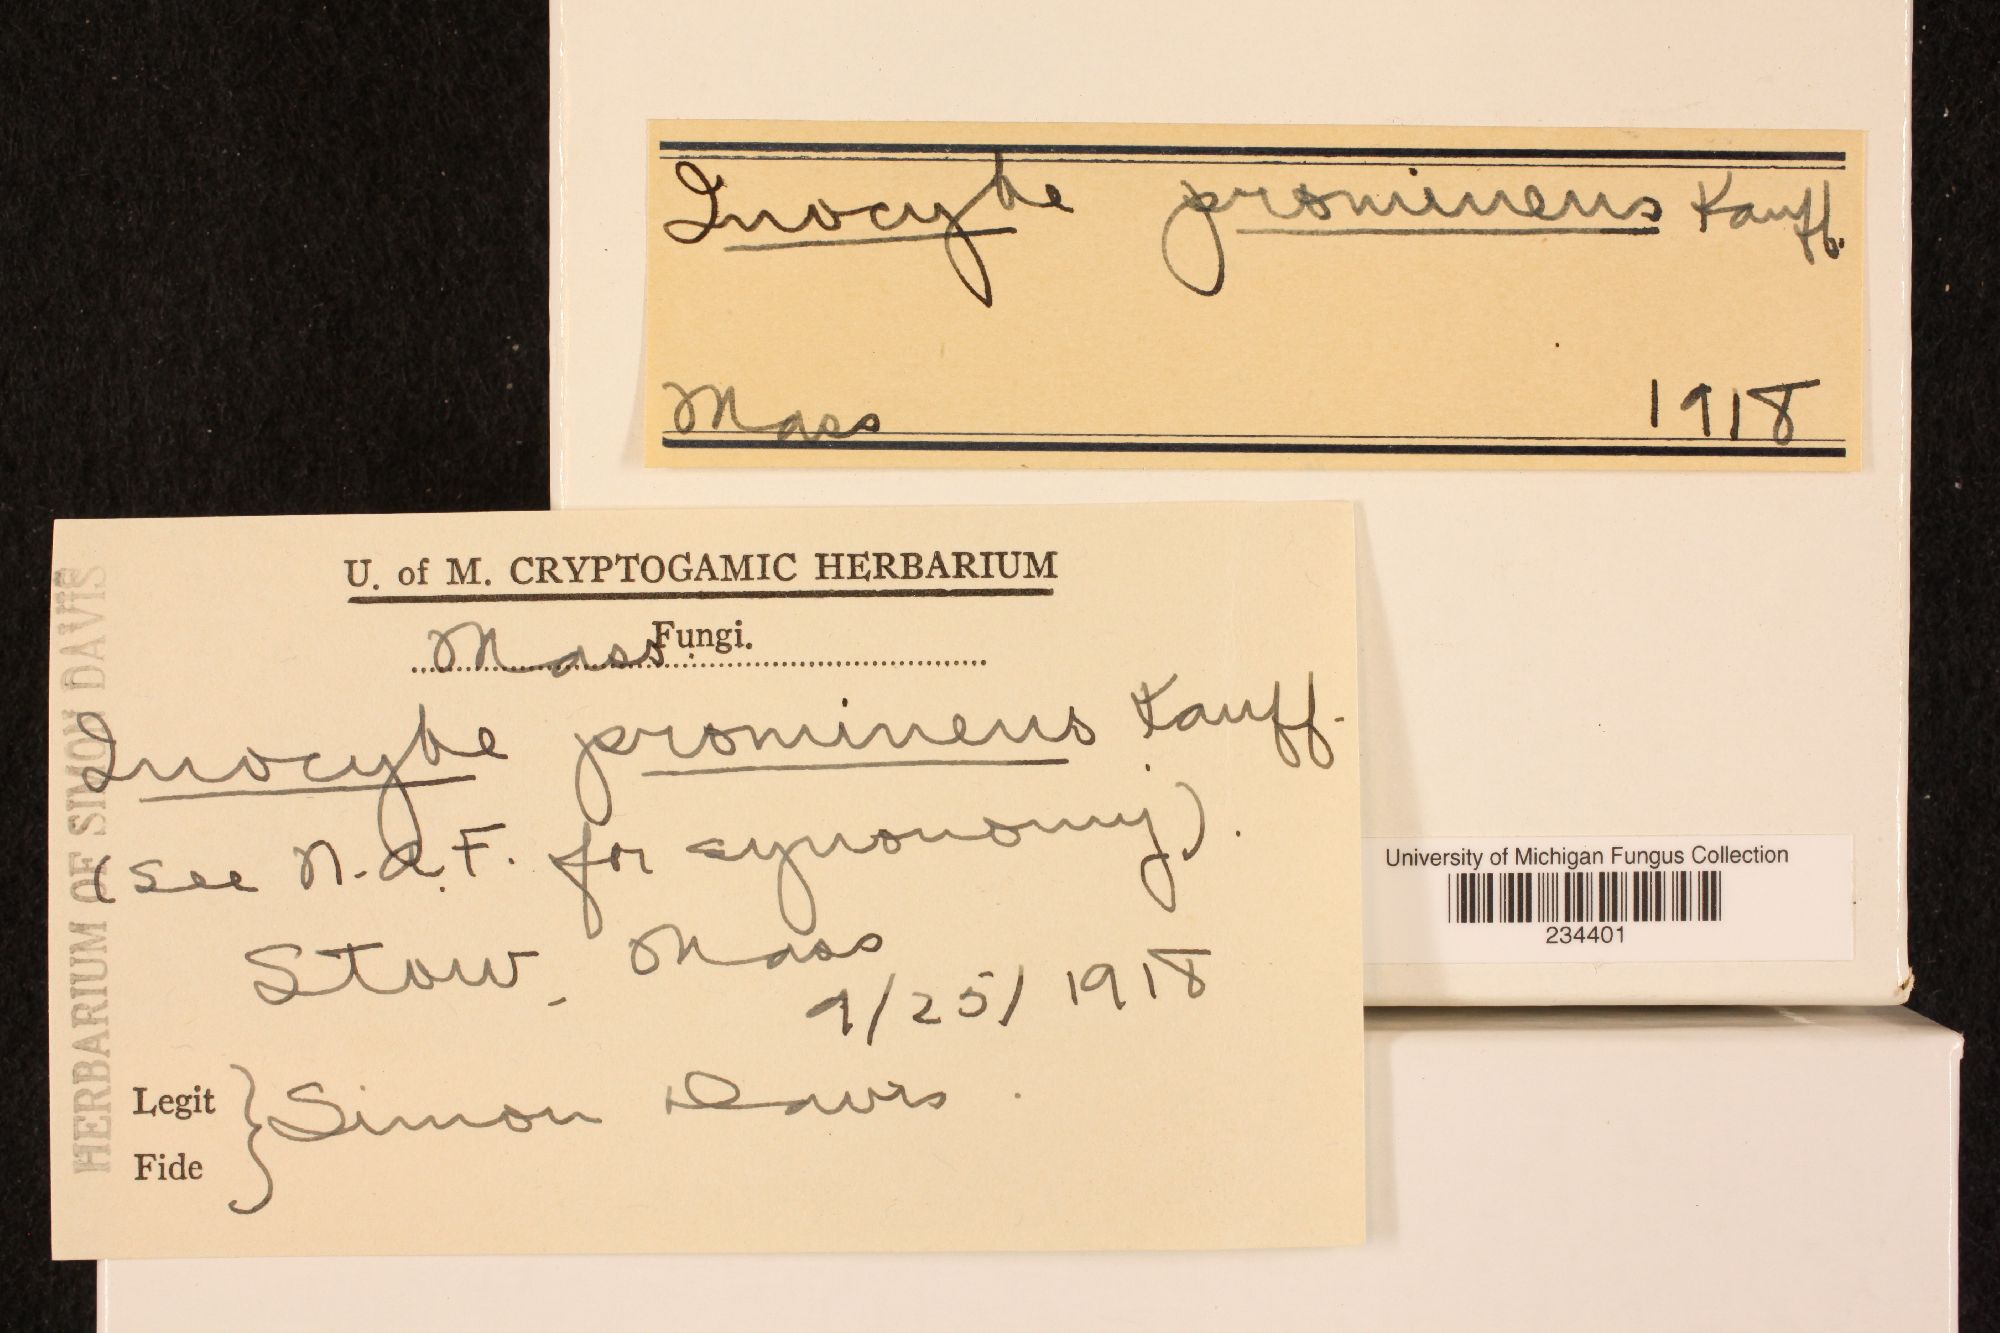 Inocybe prominens Kauff.
Mass 1918
U. of M. CRYPTOGAMIC HERBARIUM
Mass Fungi.
Inocybe prominens Kauff.
(see N.A.F. for synonomy).
Stow, Mass
9/25/1918
Legit
Fide
Simon Davis.
HERBARIUM OF SIMON DAVIS
University of Michigan Fungus Collection
234401